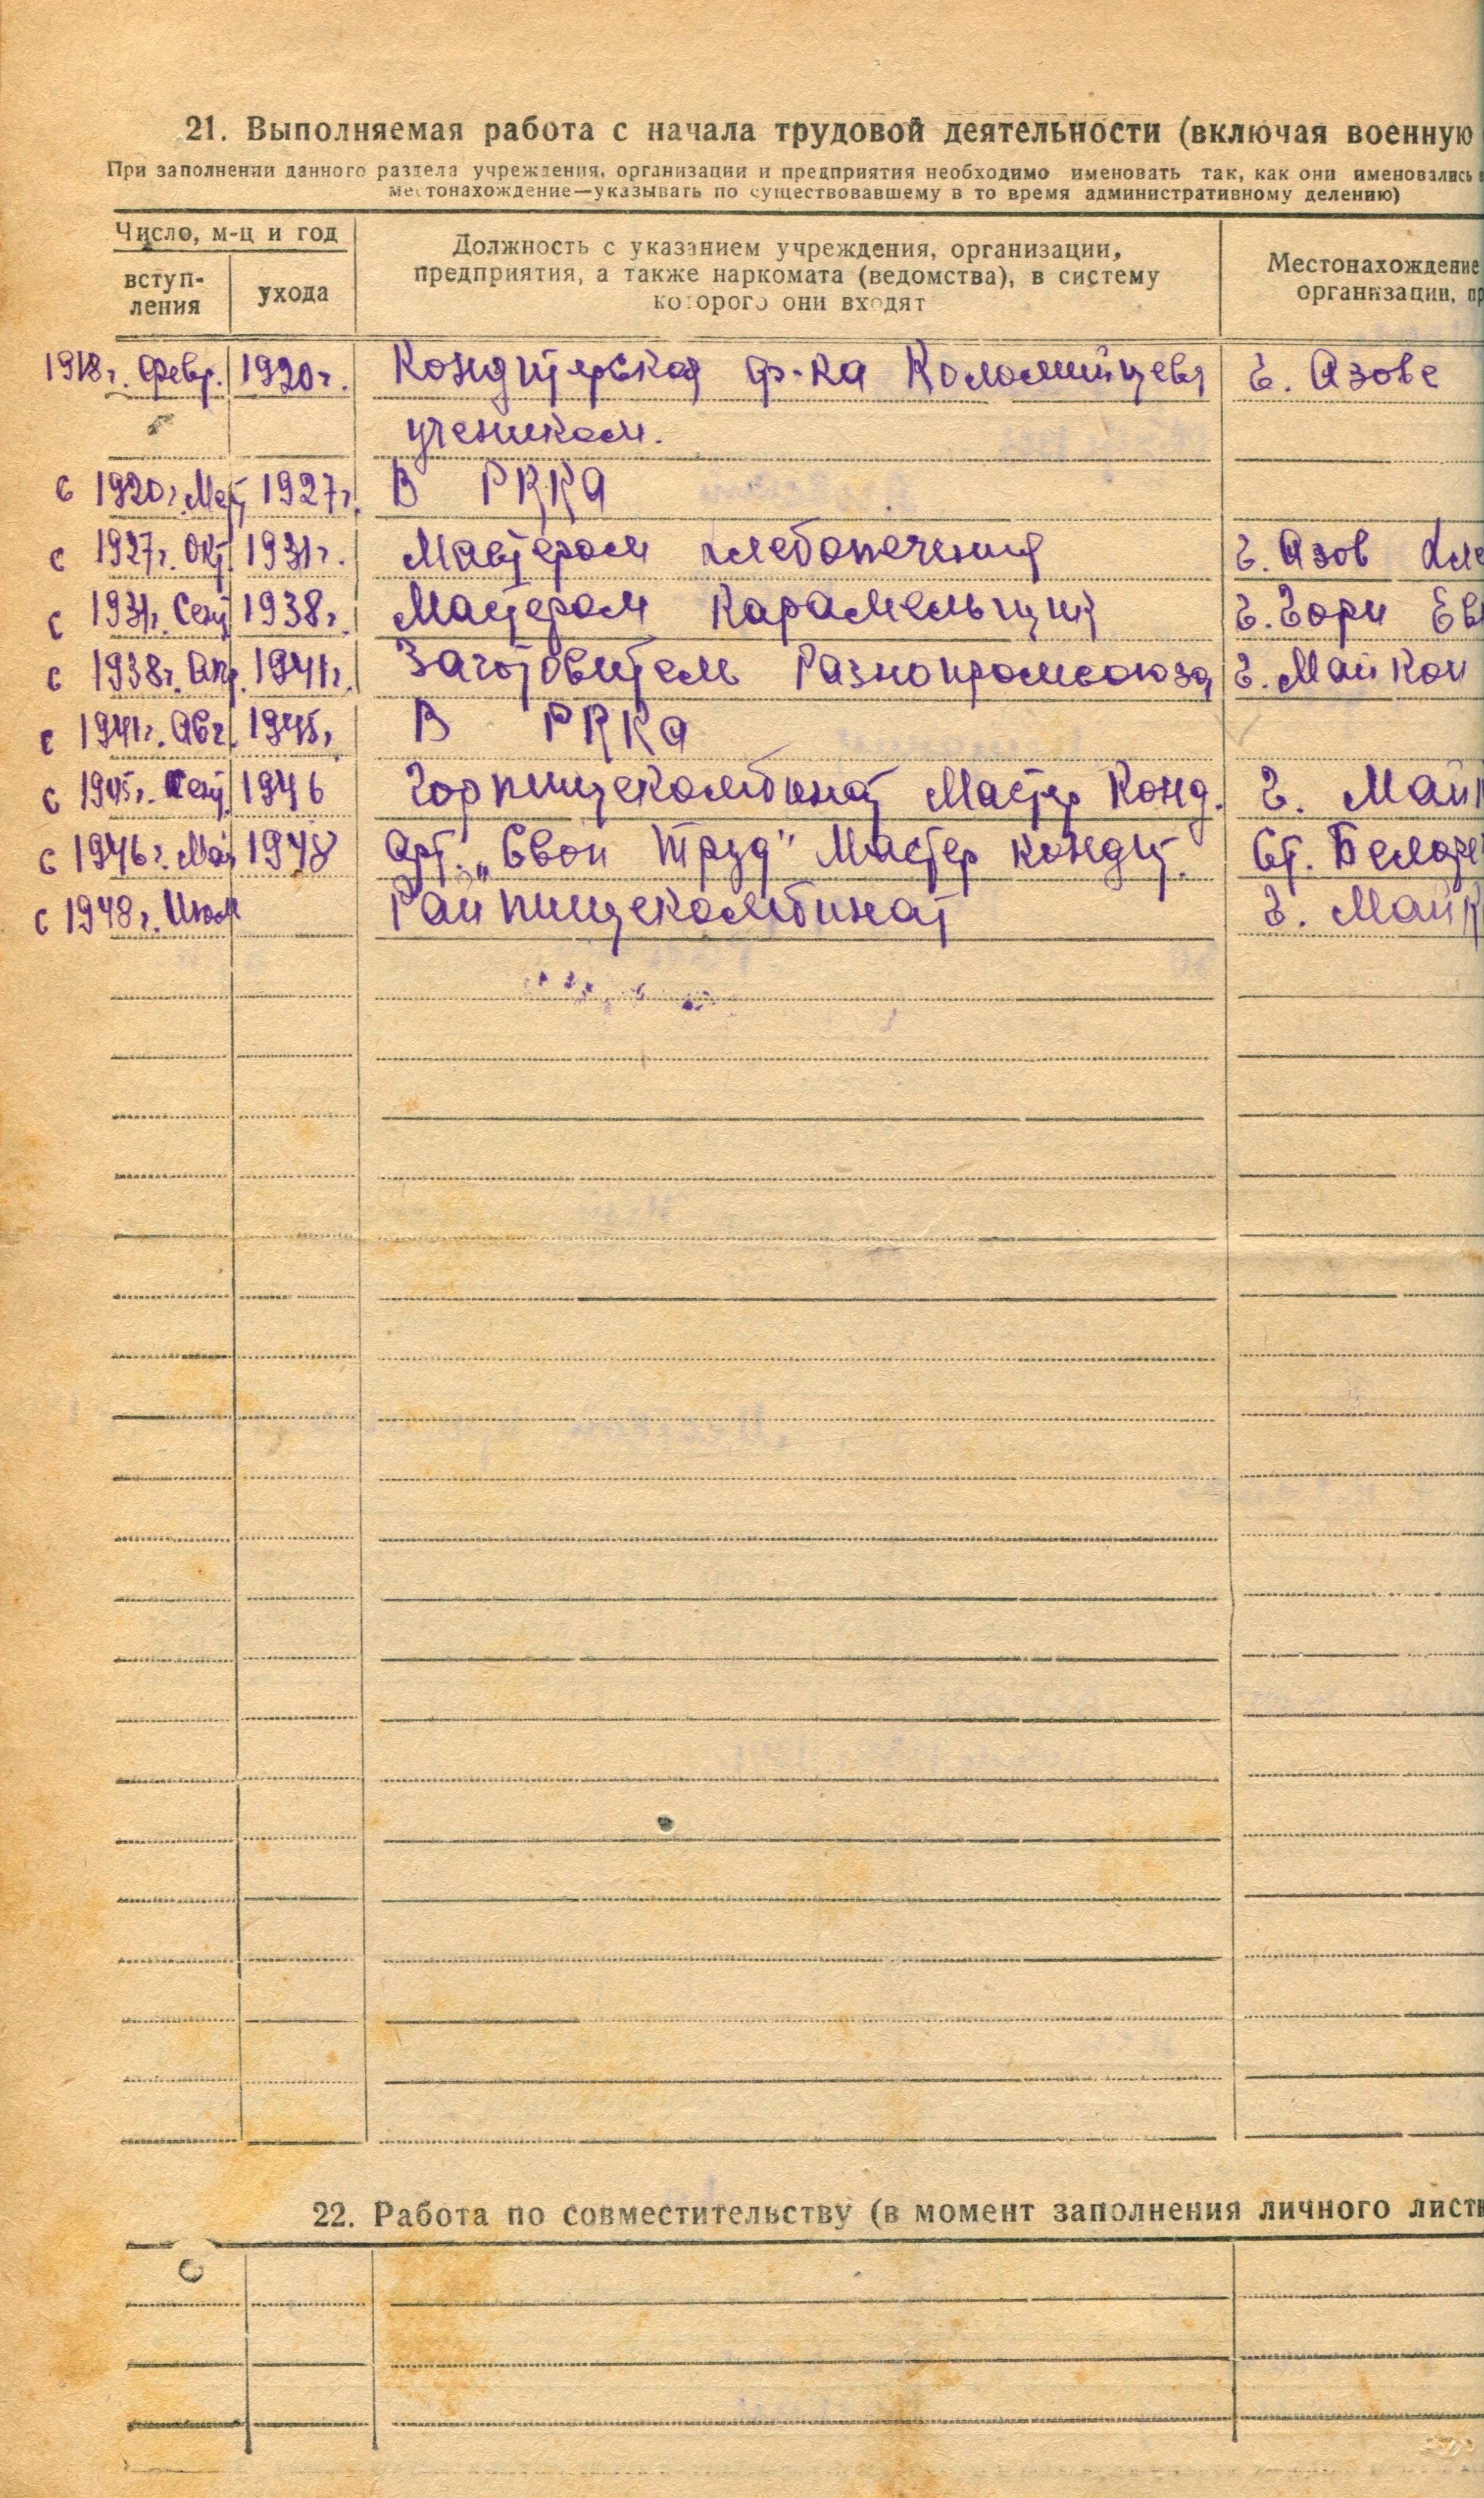 21. Выполняемая работа с начала трудовой деятельности (включая военную
При заполнении данного раздела учреждения, организации и предприятия необходимо именовать так, как они именовались в
местонахождение—указывать по существовавшему в то время административному делению)
Число, м-ц и год
вступ-
ления
ухода
Должность с указанием учреждения, организации,
предприятия, а также наркомата (ведомства), в систему
которого они входят
Местонахождение
организации, пр
1918 г. Февр. 1920 г. Кондитерская ф-ка Коломийцева г. Азове
учеником.
с 1920 г. 1927 г. В РККА
с 1927 г. Окт 1931 г. Мастером хлебопечения г. Азов Хле
с 1931 г. Сент 1938 г. Мастером Карамельщик г. Гори
с 1938 г. Апр. 1941 г. Заготовителем Разнопромсоюза г. Майкоп
с 1941 г. Авг. 1945 г. В РККА
с 1945 г. Сент. 1946 Горпищекомбинат Мастер Конд. г. Май
с 1946 г. Май 1948 Арт. „Свой Труд" Мастер кондит. Ст. Белоре
с 1948 г. Июл Райпищекомбинат г. Майк
22. Работа по совместительству (в момент заполнения личного листк